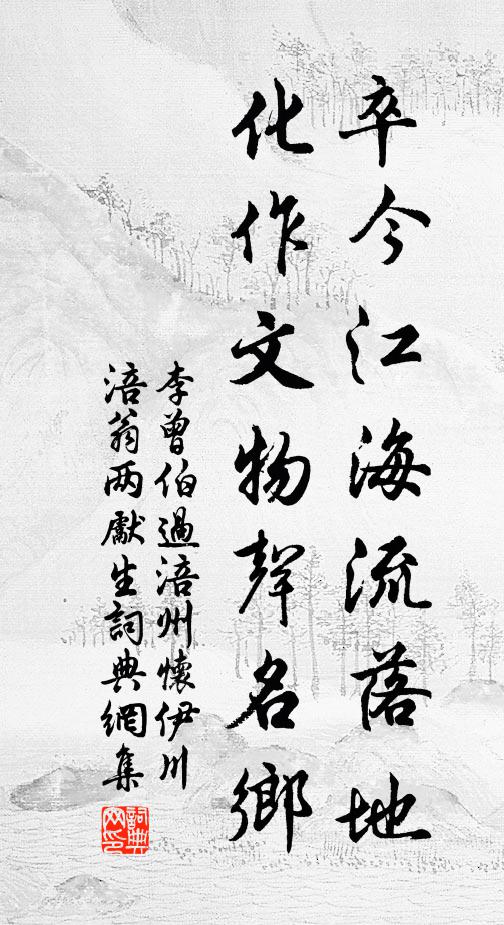 卒今江海流落地
化作文物聲名鄉
李曾伯過涪州懷伊川
涪翁两獻生詞典網集
詞典网印